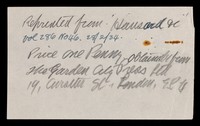 Reprinted from Hansard &c
vol 286 No 46. 28/2/34.
Price one Penny, obtainable from
the Garden City Press Ltd
19, Cursitor St. London. E.C.4